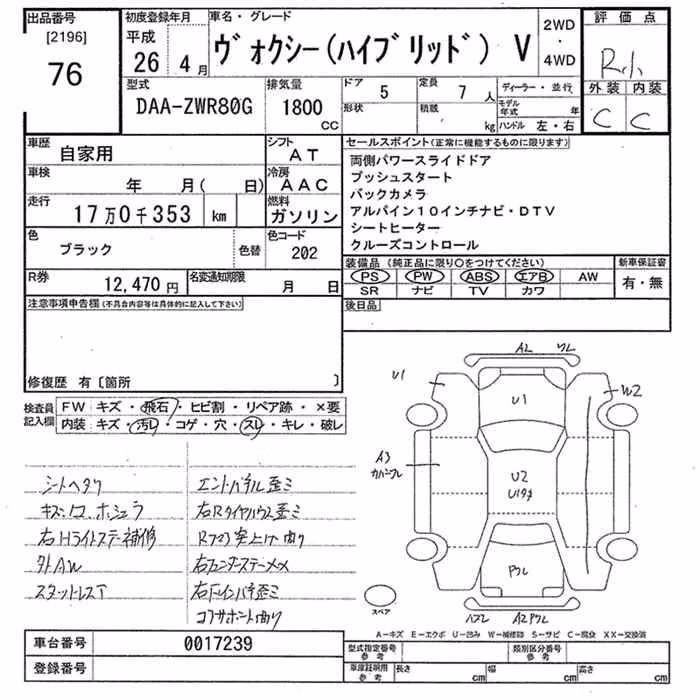 出品番号
[2196]
76
初度登録年月
平成
26 4 月
車名・グレード
ヴォクシー(ハイブリッド) V
2WD
・
4WD
評価点
R小
外装 内装
C C
型式
DAA-ZWR80G
排気量
1800
CC
ドア 5
形状
定員 7 人
積載 kg
ディーラー・並行
モデル年式 年
ハンドル 左・右
車歴 自家用
シフト AT
車検 年 月( 日)
冷房 AAC
走行 17万0千353 km
燃料 ガソリン
色 ブラック 色替
色コード 202
R券 12,470円
名変通知期限 月 日
セールスポイント(正常に機能するものに限ります)
両側パワースライドドア
プッシュスタート
バックカメラ
アルパイン10インチナビ・DTV
シートヒーター
クルーズコントロール
装備品(純正品に限り○をつけてください)
新車保証書
PS PW ABS エアB AW
SR ナビ TV カワ
有・無
後日品
注意事項申告欄(不具合内容等は具体的に記入して下さい)
修復歴 有〔箇所 〕
検査員記入欄
FW キズ・飛石・ヒビ割・リペア跡・×要
内装 キズ・汚レ・コゲ・穴・スレ・キレ・破レ
シートヘタリ
右Hライトステー補修
外AW
スタットレスT
右Rタイヤハウス歪ミ
コアサポート曲り
AL ワレ
U1
U1
W2
A3
U2
スペア
A2ワレ
A-キズ E-エクボ U-凹み W-補修跡 S-サビ C-腐食 XX-交換済
車台番号 0017239
登録番号
型式指定番号
参考
類別区分番号
参考
車庫証明用
参考
長さ cm
幅 cm
高さ cm